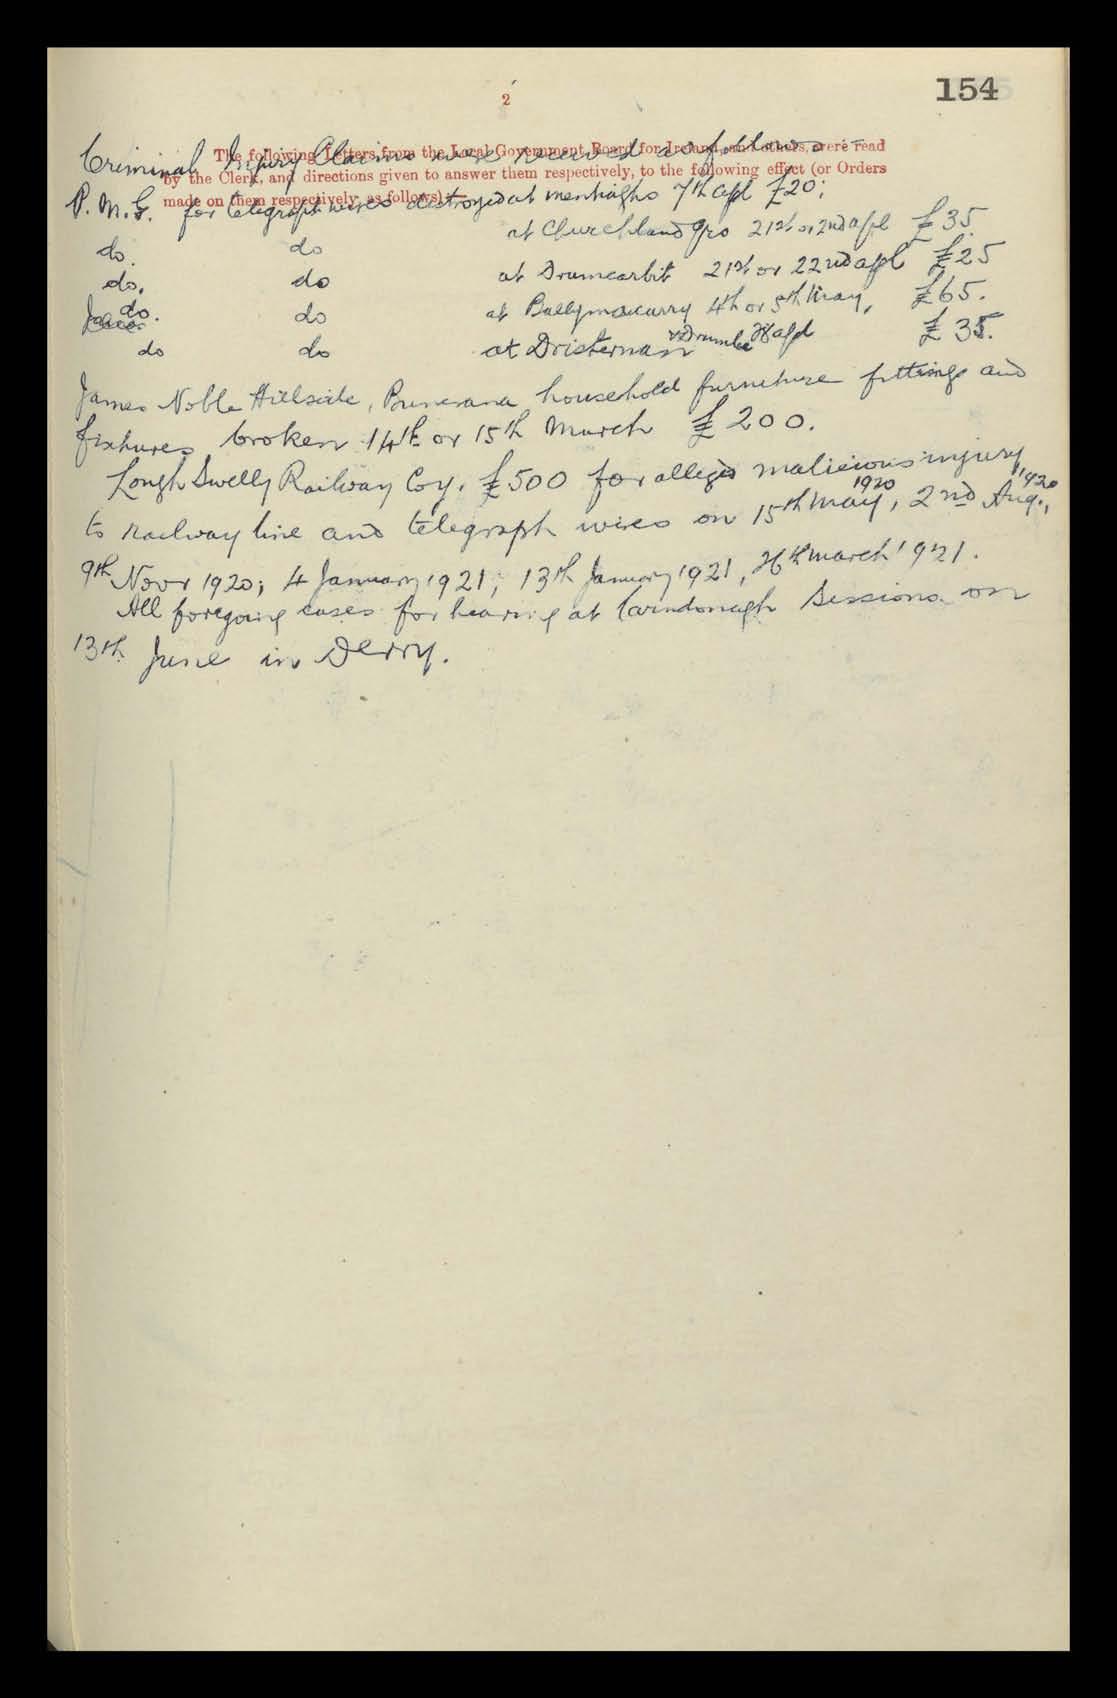 154
2
The following Letters from the Local Government Board for Ireland, and others, were read
by the Clerk, and directions given to answer them respectively, to the following effect (or Orders
made on them respectively, as follows):—
Criminal Injury Claims were received as follows:-
P.M.G. for telegraph wires destroyed at 7th Apl £20;
do. do at Churchland Qrs 21st or 2nd Apl £35.
do. do at Drumcarbit 21st or 22nd Apl £25
do. do at Ballymacarry 4th or 5th May, £65.
do do at Dristernan & Apd £35.
James Noble Hillside, Buncrana household furniture fittings and
fixtures broken 14th or 15th March £200.
Lough Swilly Railway Coy. £500 for alleged malicious injury
to railway line and telegraph wires on 15th May 1920, 2nd Aug., 1920
9th Novr 1920; 4 January 1921; 13th January 1921, March 1921.
All foregoing cases for hearing at Carndonagh Sessions on
13th June in Derry.